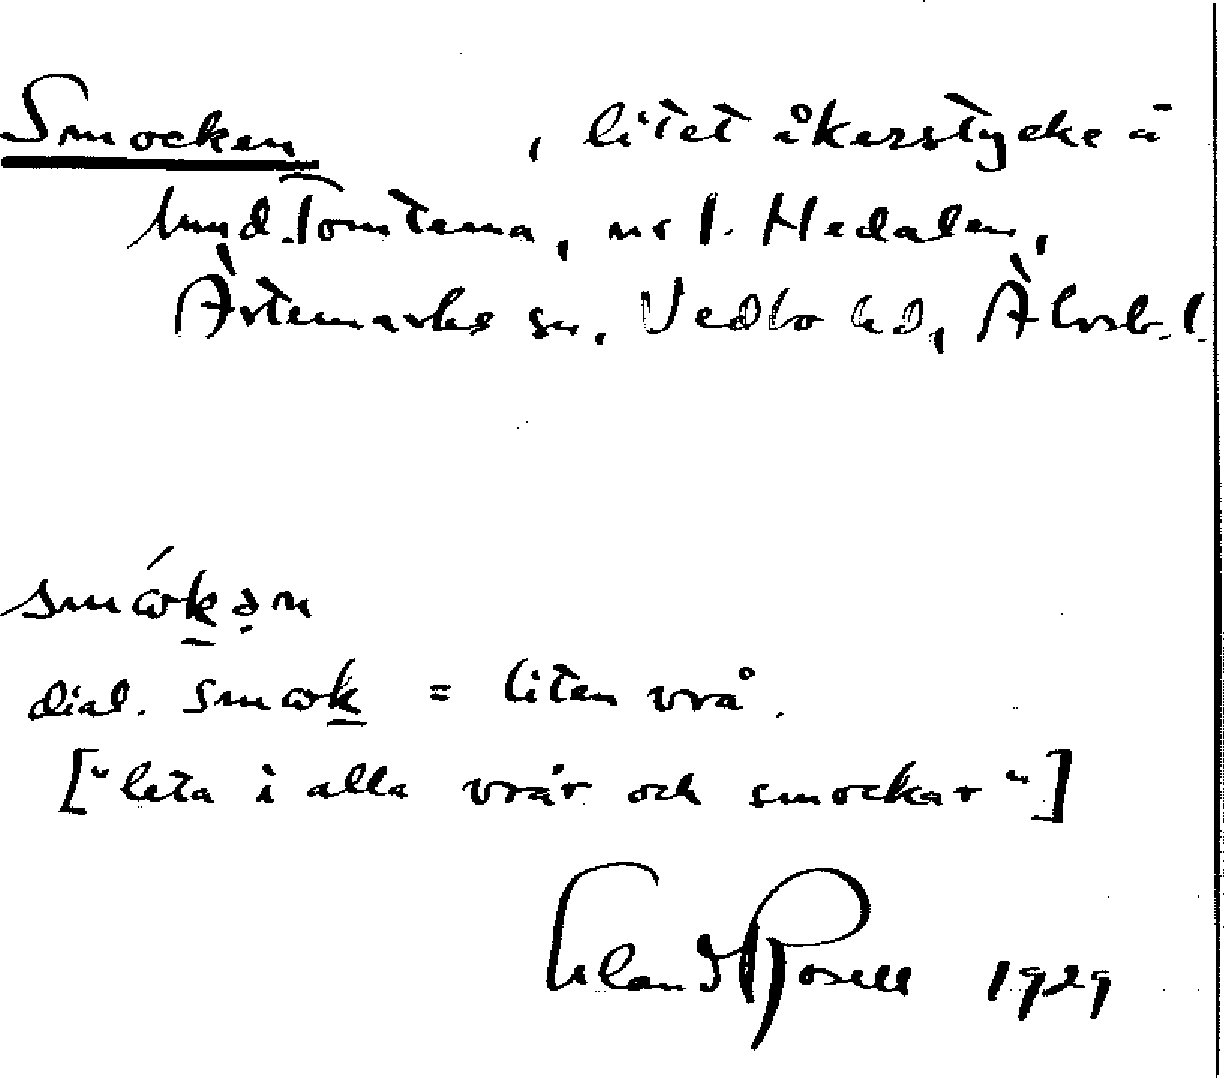 Smocken , litet åkerstycke å
hmd. Tomterna, nr 1. Hedalen,
Ärtemarks sn, Vedbo hd, Älvsb. l.
smɷ́kən
dial. smɷk = liten vrå.
["leta i alla vrår och smockar"]
Erland Rosell 1929